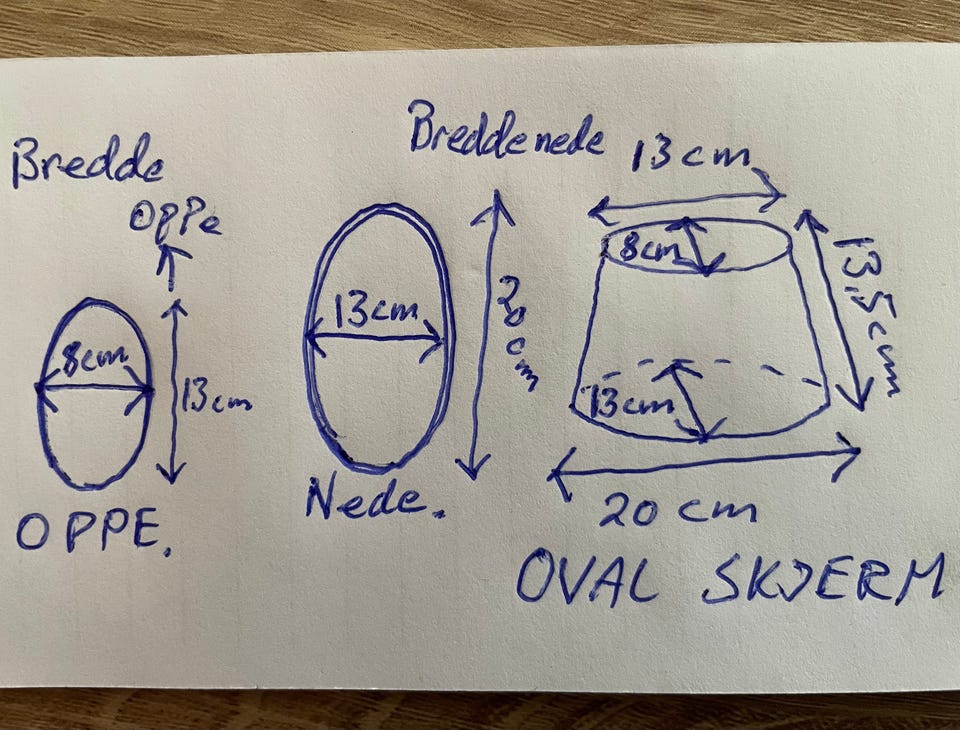 Bredde
OPPe
8cm
13cm
OPPE.
Bredde nede
13cm
20cm
Nede.
13cm
8cm
13,5cm
13cm
20 cm
OVAL SKJERM